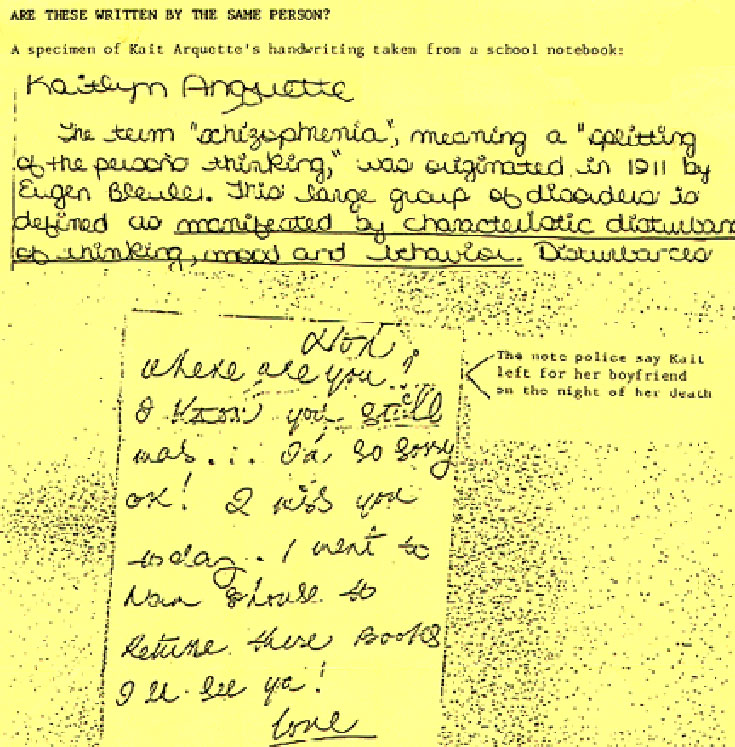 ARE THESE WRITTEN BY THE SAME PERSON?
A specimen of Kait Arquette's handwriting taken from a school notebook:
Kaitlyn Arquette
The term "schizophrenia", meaning a "splitting
of the person's thinking," was originated in 1911 by
Eugen Bleuler. This large group of disorders is
defined as manifested by characteristic disturban
of thinking, mood and behavior. Disturbances
Hon,
where are you?
I know you still
mad... I'm so sorry
ok! I miss you
today. I went to
house to
return these books
I'll see ya!
Love
The note police say Kait
left for her boyfriend
on the night of her death